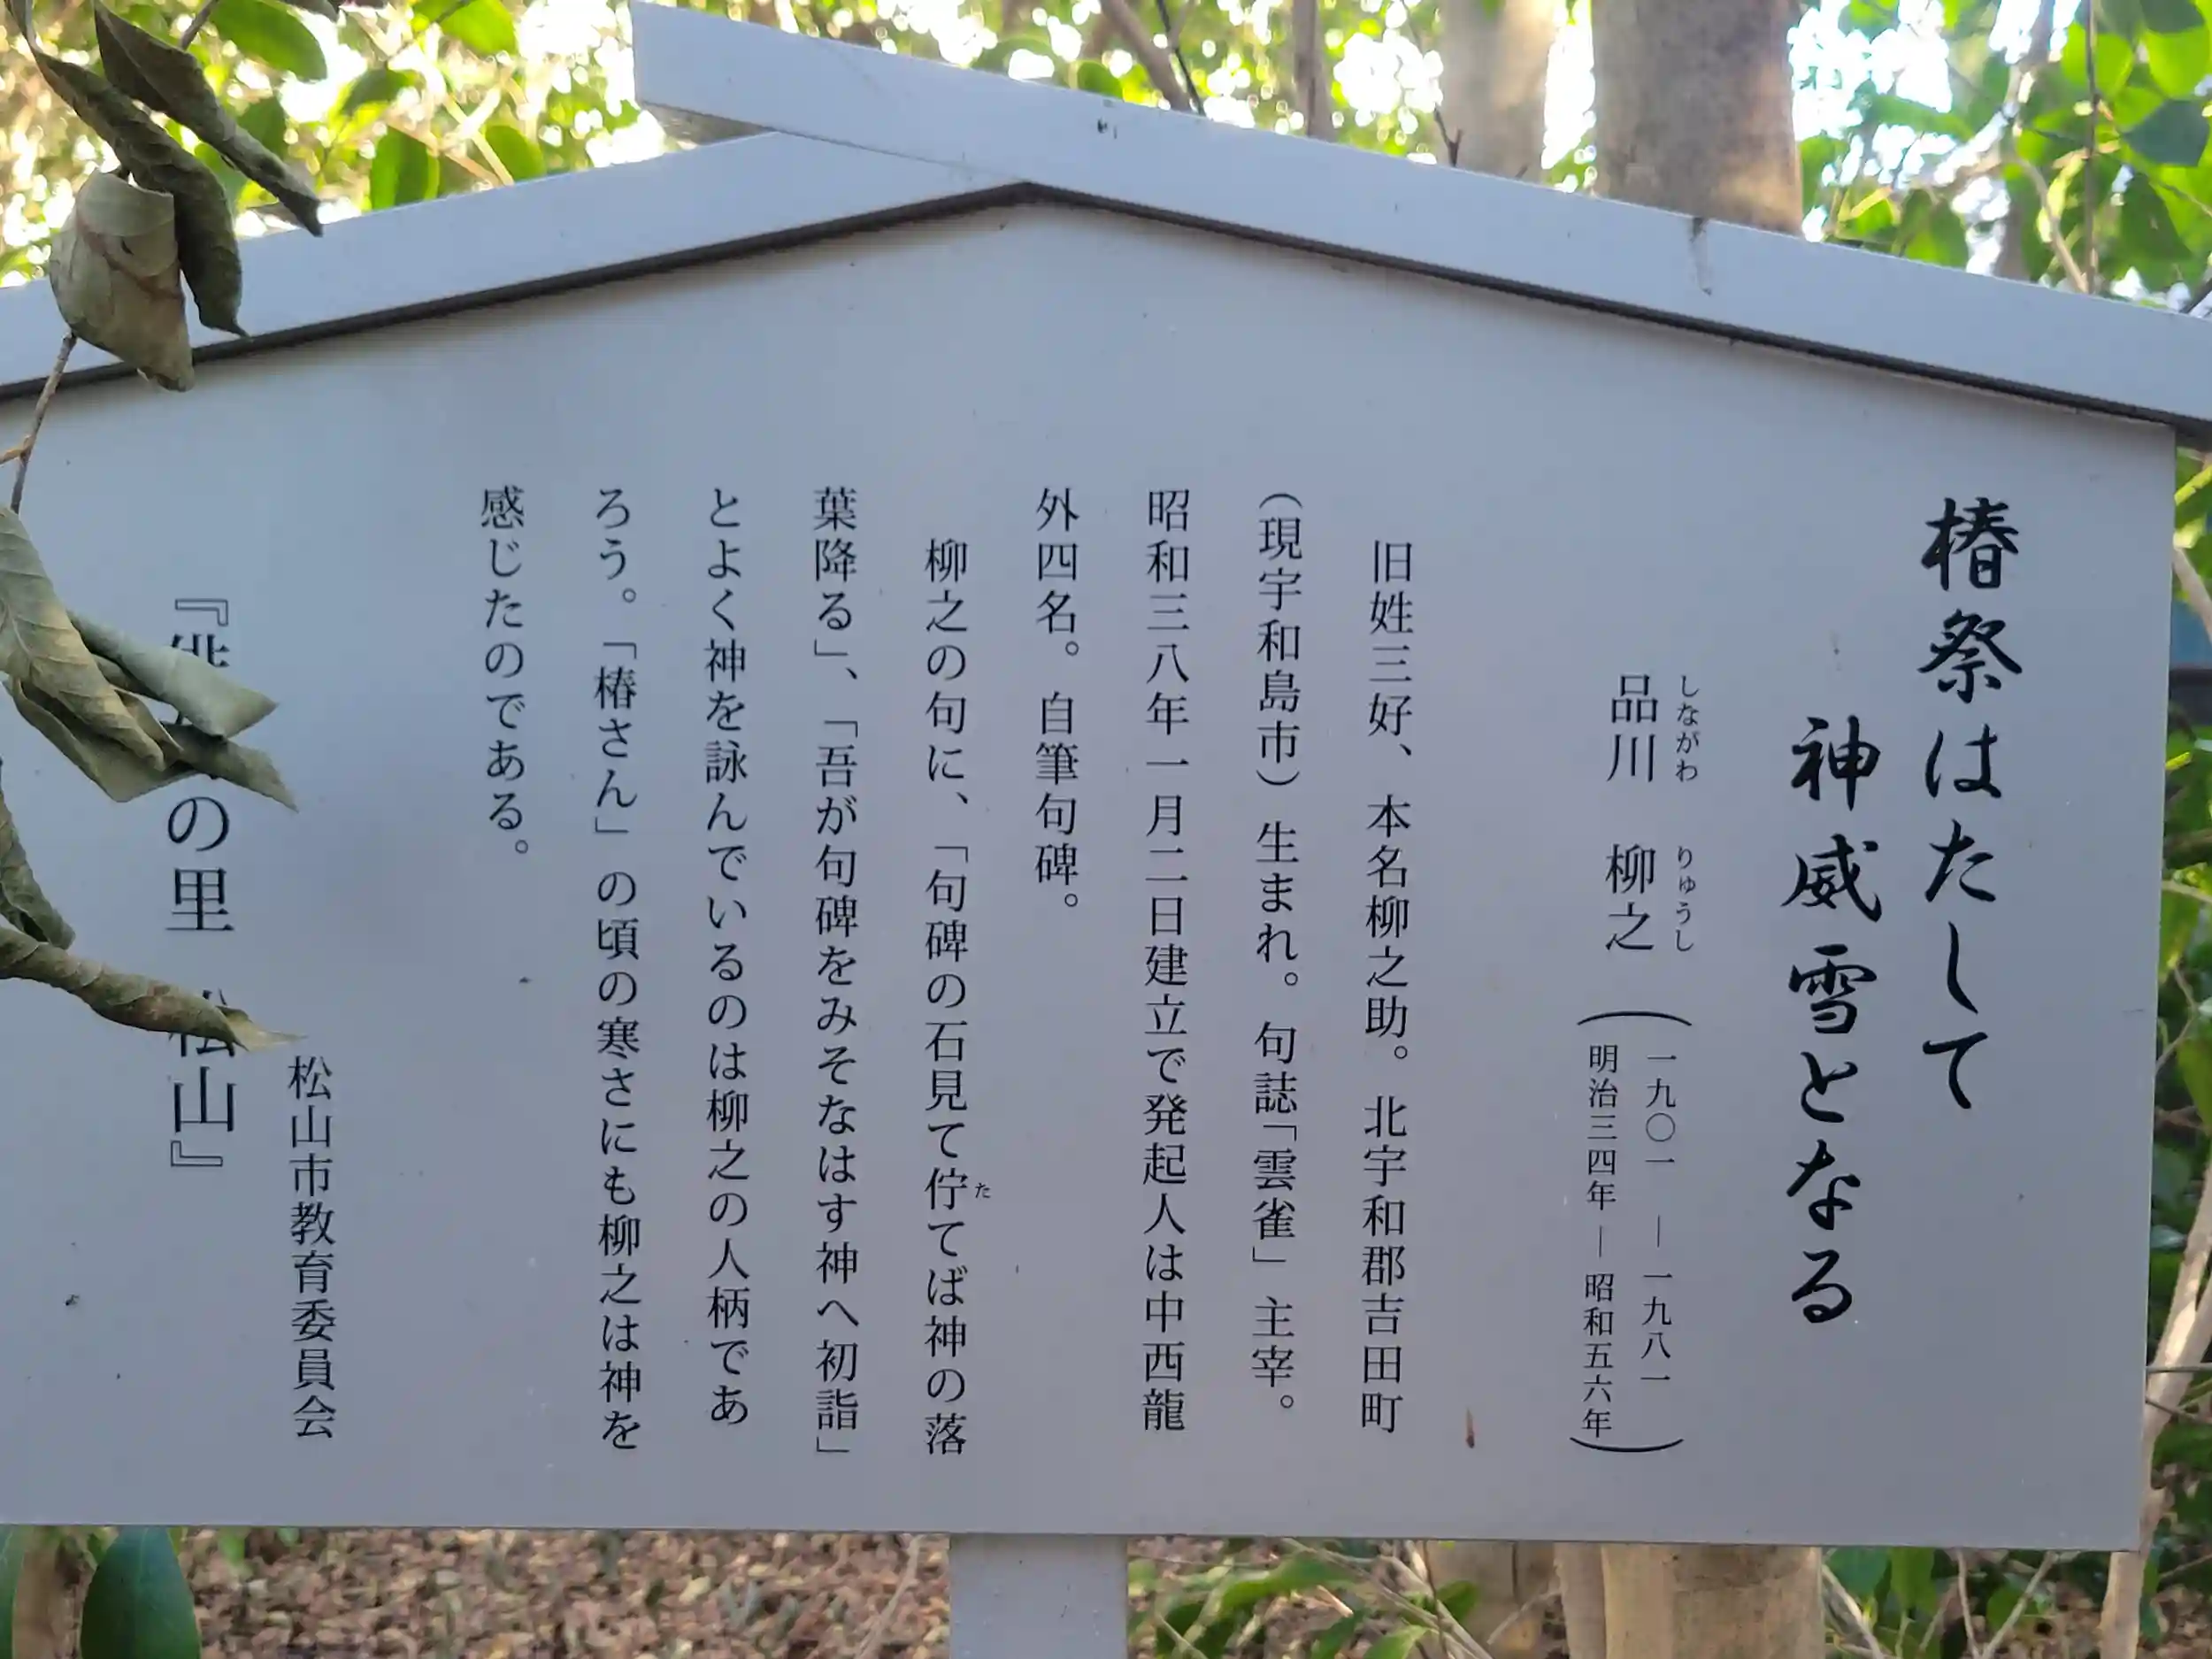 椿祭はたして
神威雪となる
しながわ りゅうし
品川 柳之
一九〇一 ― 一九八一
(明治三四年 ― 昭和五六年)
旧姓三好、本名柳之助。北宇和郡吉田町
(現宇和島市)生まれ。句誌「雲雀」主宰。
昭和三八年一月二日建立で発起人は中西龍
外四名。自筆句碑。
柳之の句に、「句碑の石見て佇てば神の落
た
葉降る」、「吾が句碑をみそなはす神へ初詣」
とよく神を詠んでいるのは柳之の人柄であ
ろう。「椿さん」の頃の寒さにも柳之は神を
感じたのである。
松山市教育委員会
『俳 の里 松山』